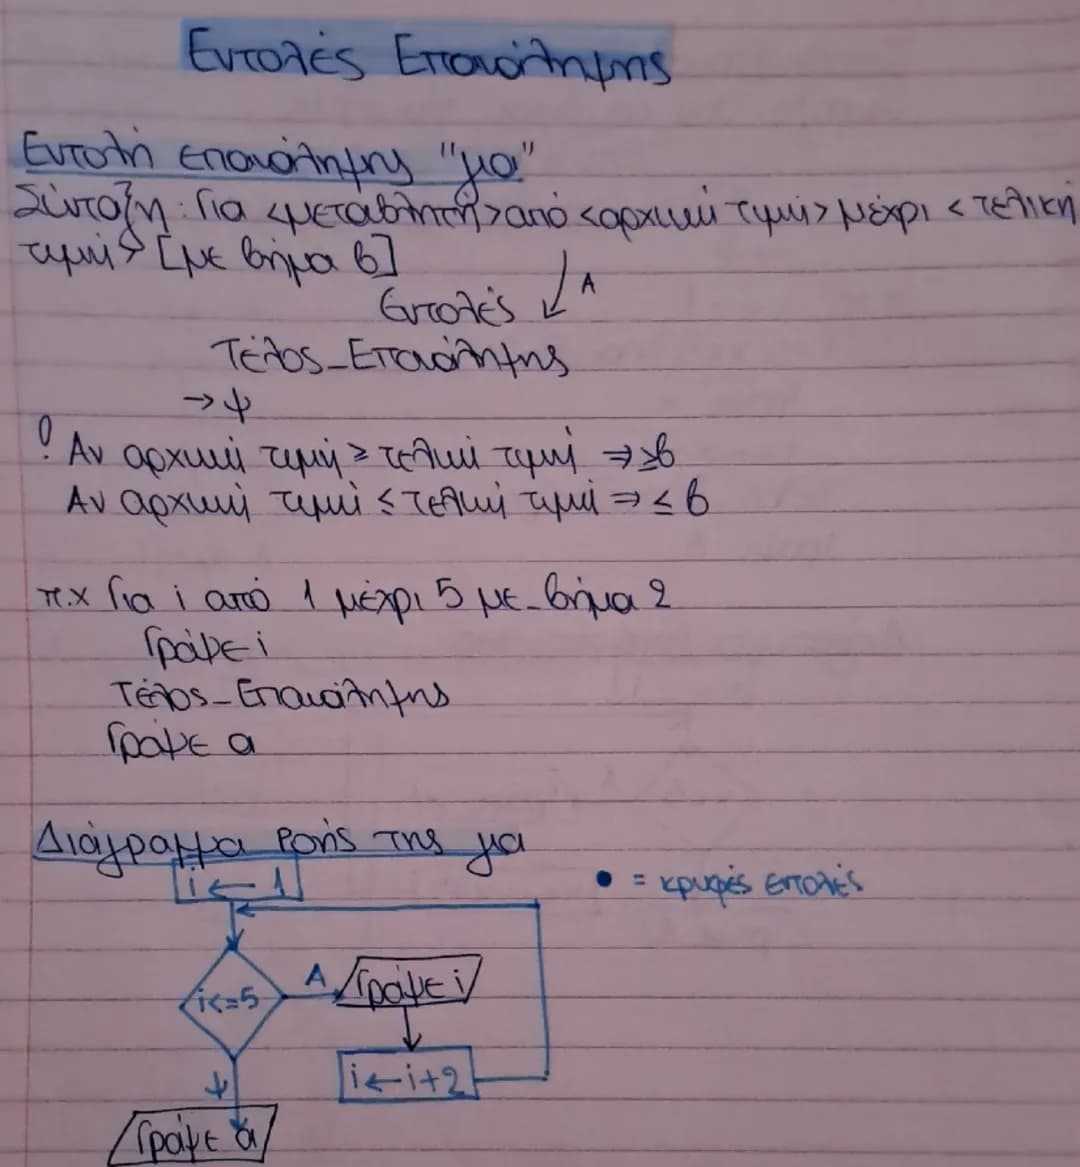 Εντολές Επανάληψης
Εντολή επανάληψης "για"
Σύνταξη: Για <μεταβλητή> από <αρχική τιμή> μέχρι <τελική
τιμή> [με βήμα β]
Εντολές ↙ Α
Τέλος_Επανάληψης
→ Ψ
! Αν αρχική τιμή ≥ τελική τιμή ⇒ ≥β
Αν αρχική τιμή ≤ τελική τιμή ⇒ ≤ β
π.χ Για i από 1 μέχρι 5 με_βήμα 2
Γράψε i
Τέλος_Επανάληψης
Γράψε α
Διάγραμμα Ροής της για
i ← 1
• = κρυφές εντολές
i<=5
Α
Γράψε i
i ← i+2
Ψ
Γράψε α